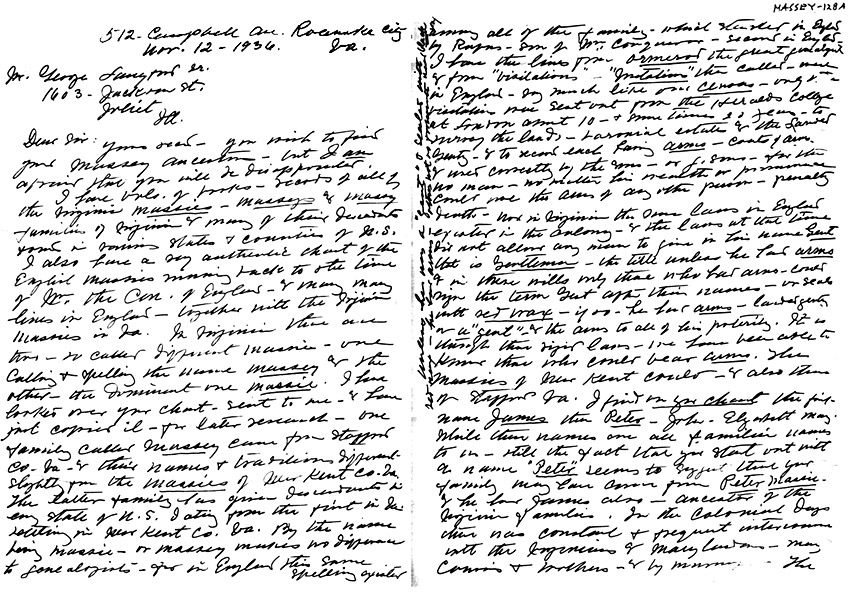 MASSEY-128A
512- Campbell Ave. Roanoke City
Nov. 12-1936. Va.
Mr. George Sanford Sr.
1603- Jackson St.
Joliet
Ill.
Dear Sir: yours read - you wish to find
your Massey Ancestors - but I am
afraid that you will be disappointed.
I have vols. of books - records of all of
the Virginia Massies - Masseys & Massy
families of Virginia & many of their descendants
in various states & counties of U.S.
I also have a very authentic chart of the
English Massies running back to the time
of Wm. the Con. of England - & many many
lines in England - together with the Virginia
Massies in Va. In Virginia there are
two - so called different Massie - one
calling & spelling the name Massey & the
other - the dominant one Massie. I have
looked over your chart - sent to me - & have
just copied it - for later research - one
family called Massey came from Stafford
Co. Va - & their names & traditions different
slightly from the Massies of New Kent Co. Va.
The latter family has given descendants in
every state of U.S. dating from the first in Va.
settling in New Kent Co. Va. By the name
being Massie - or Massey makes no difference
to genealogists - for in England this same
spelling existed
among all of the family - which started in Engld
by - son of Wm. Conqueror - second in Engld.
I have the lines from Ormerod the great genealogist
& from "visitations" - "Visitation" they called were
in England - very much like our Census - only a
visitation was sent out from the Heralds College
at London about 10 - & some times 20 years - to
survey the lands - baronial estate & the landed
gentry - & to record each living arms - coats of arms
& used correctly by the sons - or g. sons - for the
no man - no matter his wealth or prominence
could use the arms of any other person - penalty
death - nor in Virginia the same laws in England
existed in the Colony - & the laws at that time
did not allow any man to give in his name Gent
that is Gentleman - the title unless he had arms
& in these wills only those who had arms - could
sign the term Gent after their names - or seal
with red wax - if so - he had arms - landed gentry
or a "gent" - & the arms to all of his posterity. It is
through these rigid laws - we have been able to
know those who could bear arms. The
Massies of New Kent could - & also those
of Stafford Va. I find on your chart the first
name James then Peter - John - Elizabeth may.
While these names are all familiar names
to us - still the fact that you start out with
the name "Peter" seems to suggest that your
family may have come from Peter Massie.
& he had James also - ancestor of the
Virginia families. In the Colonial Days
there was constant & frequent intercourse
with the Virginians & Marylanders - many
Cousins & brothers - & by - The